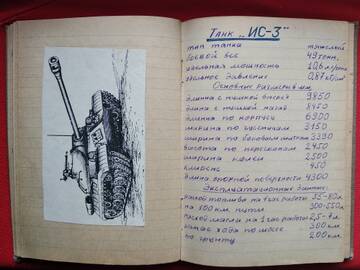 Танк „ИС-3"
тип танка тяжелый
боевой вес 49 тонн
удельная мощность
удельное давление 0,87 кг/см²
Основные размеры в мм
длинна с пушкой вперёд 9850
длинна с пушкой назад
длинна по корпусу 6900
ширина по гусеницам 3150
ширина по боковым щиткам 3390
высота по перископам 2450
ширина колеи 2500
клиренс 450
длина опорной поверхности 4300
Эксплуатационные данные:
расход топлива на 1 час работы 55-80 л
на 100 км пути 300-550 л
расход масла на 1 час работы 2,5-4 л
запас хода по шоссе 300 км
по грунту 200 км